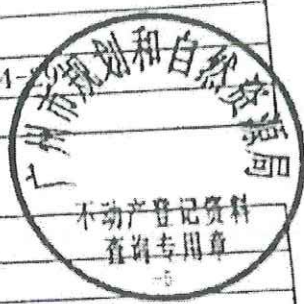 4-
广州市规划和自然资源局
不动产登记资料
查询专用章
-5